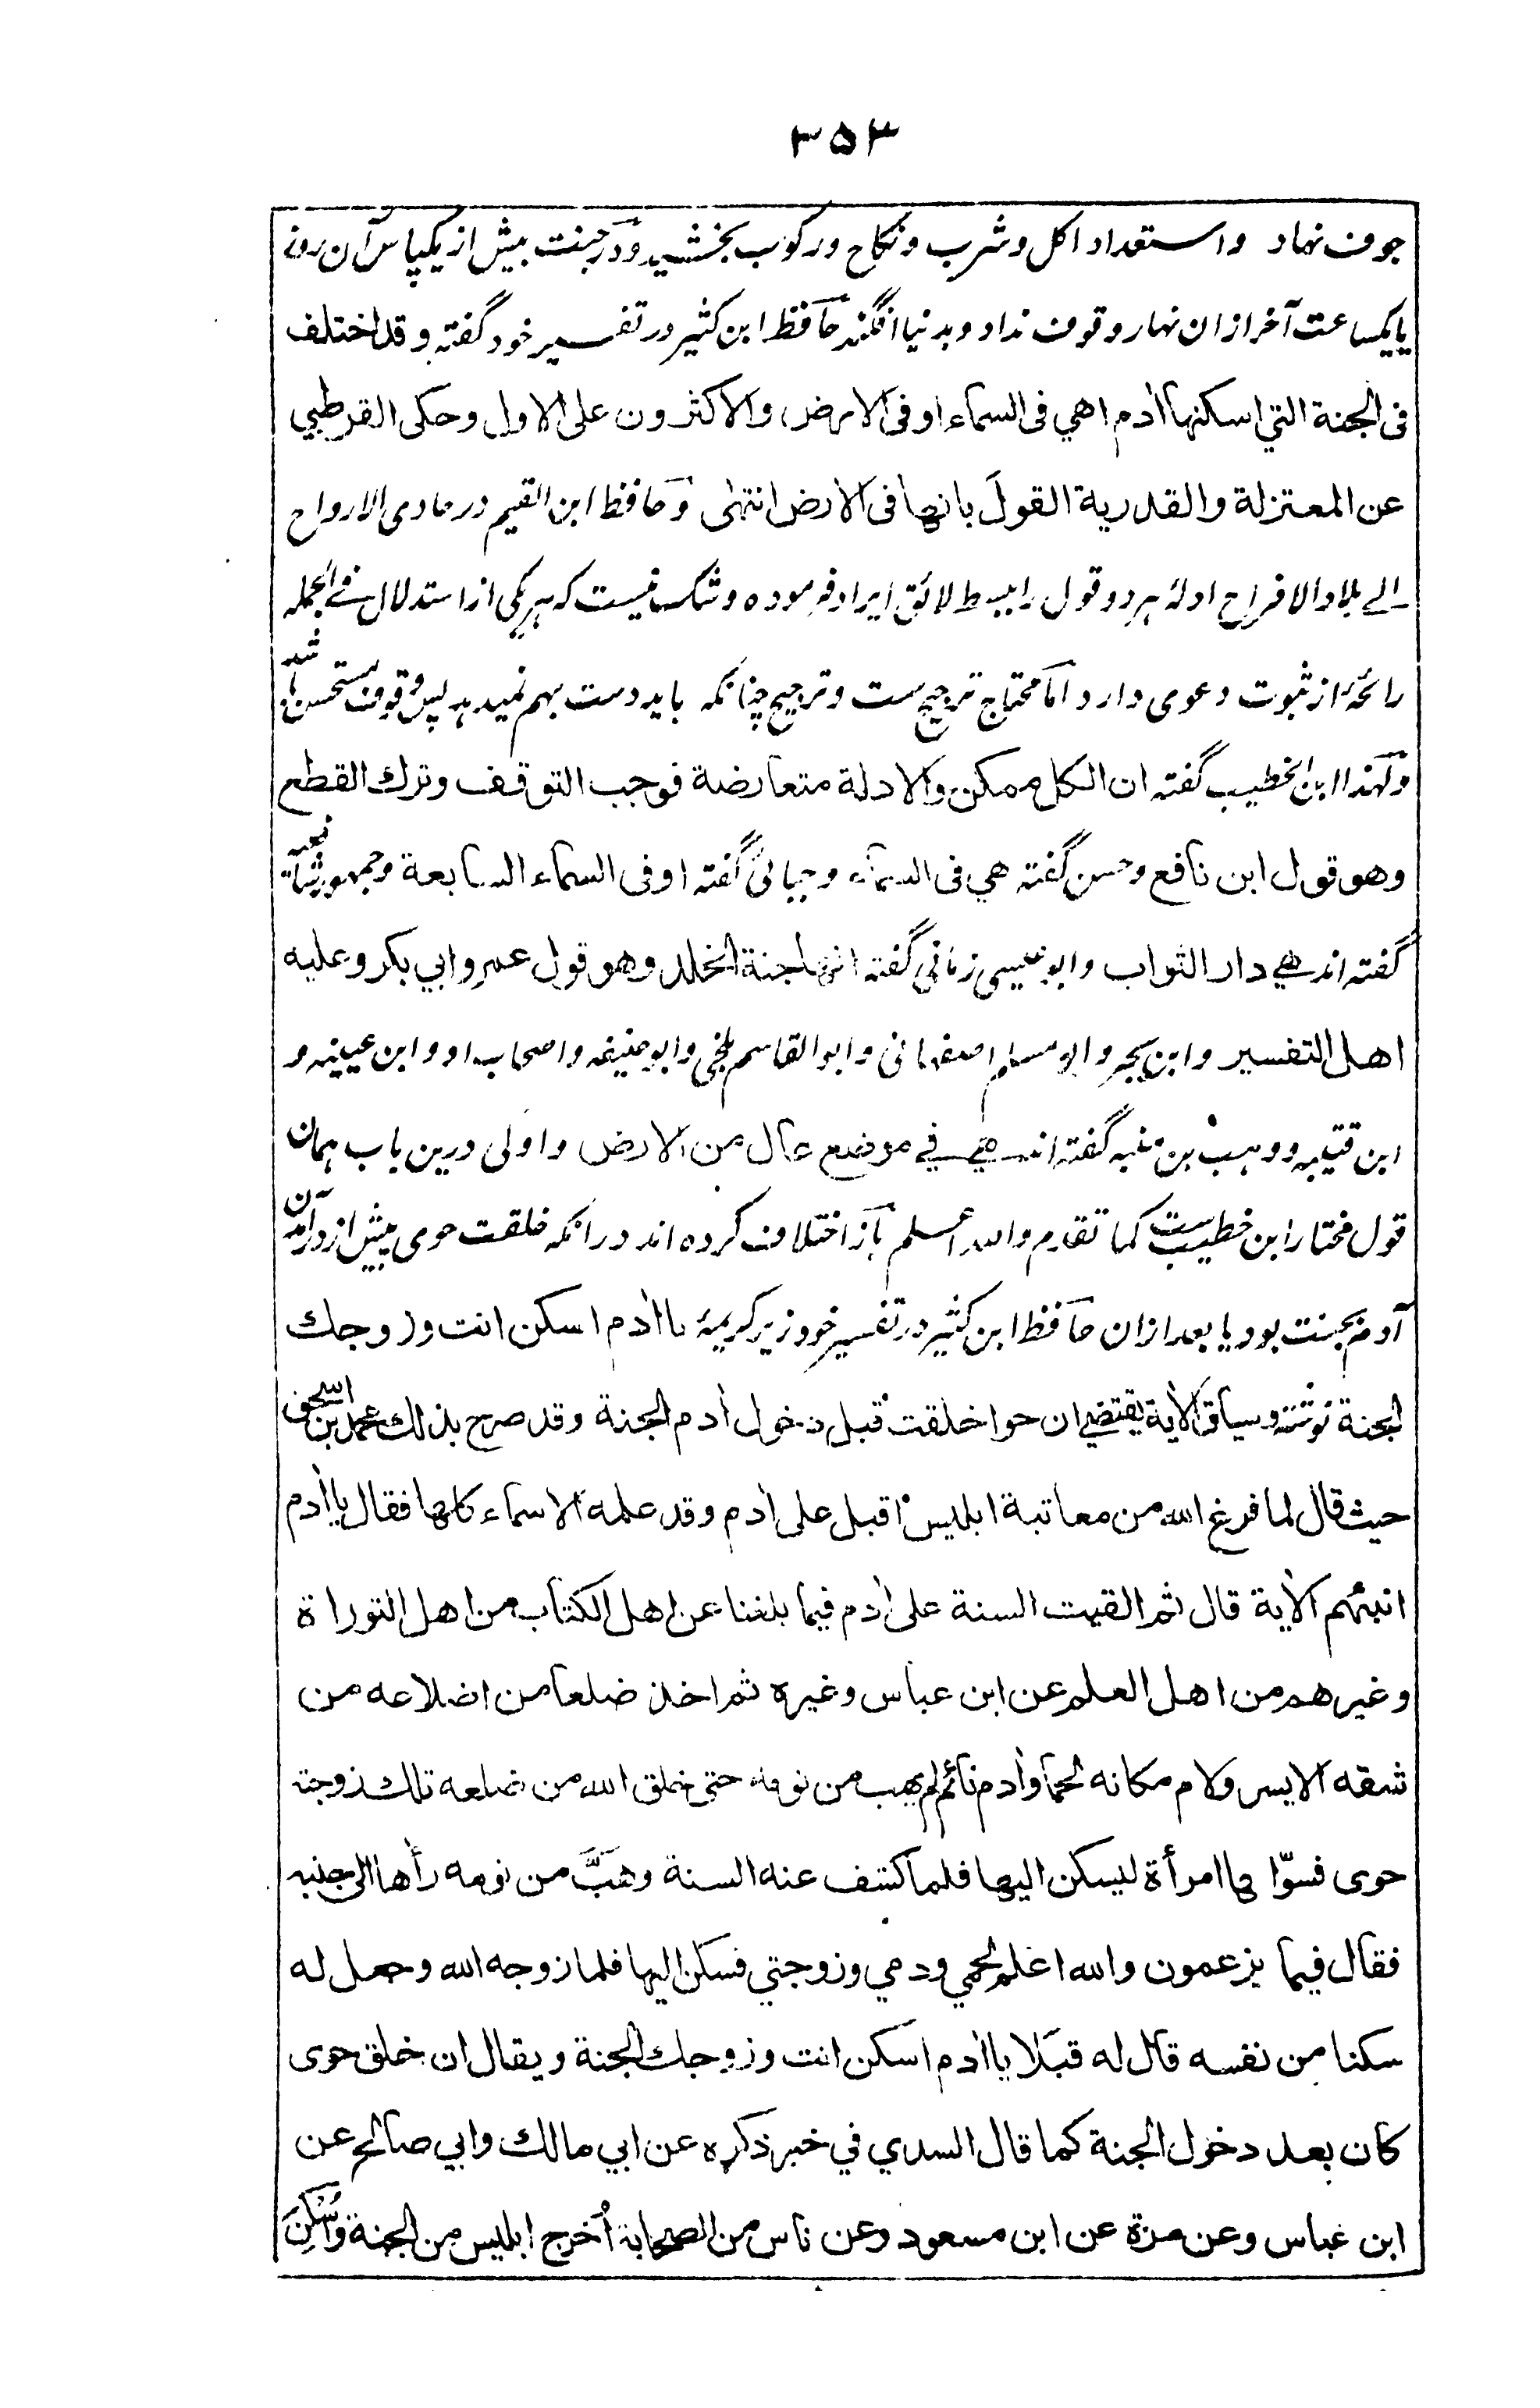 ۳۵۳
جوف نهاد و استعداد اکل و شرب و نکاح و رکوب بخشید و در جنت بیش از یکپاس آن روز
یا یکساعت آخر ازان نهار وقوف نداد و بدنیا افگند حافظ ابن کثیر در تفسیر خود گفته وقد اختلف
فی الجنة التي اسکنها اٰدم اهي فی السماء او فی الارض، والاکثرون علی الاول وحکی القرطبي
عن المعتزلة والقدریة القول بانها فی الارض انتهٰی و حافظ ابن القیم در حادی الارواح
الے بلاد الافراح ادلهٔ هر دو قول را ببسط لائق ایراد فرموده و شک نیست که هر یکی از استدلال فے الجمله
رائحهٔ از ثبوت دعوی دارد اما محتاج ترجیح ست و ترجیح چنانکه باید دست بهم نمیدهد پس وقوف مستحسن باشد
و لهذا ابن الخطیب گفته ان الکل ممکن والادلة متعارضة فوجب التوقف وترك القطع
وهو قول ابن نافع و حسن گفته هي فی السماء و جبائی گفته او فی السماء السابعة و جمهور شافعیه
گفته اند هی دار الثواب و ابو عیسی زمانی گفته انها جنة الخلد وهو قول عمر وابي بکر وعلیه
اهل التفسیر و ابن بحر و ابو مسلم اصفهانی و ابو القاسم بلخی و ابو حنیفه و اصحاب او و ابن عیینه و
ابن قتیبه و وهب بن منبه گفته اند هی فی موضع عال من الارض و اولی درین باب همان
قول مختار ابن خطیب ست کما تقدم والله اعلم باز اختلاف کرده اند درانکه خلقت حوی پیش از درآمدن
آدم بجنت بود یا بعد ازان حافظ ابن کثیر در تفسیر خود زیر کریمهٔ یا اٰدم اسکن انت وزوجك
الجنة نوشته وسیاق الاٰیة یقتضي ان حوا خلقت قبل دخول اٰدم الجنة وقد صرح بذلك محمد بن اسحق
حیث قال لما فرغ الله من معاتبة ابلیس اقبل علی اٰدم وقد علمه الاسماء کلها فقال یا اٰدم
انبئهم الاٰیة قال ثم القیت السنة علی اٰدم فیما بلغنا عن اهل الکتاب من اهل التوراة
وغیرهم من اهل العلم عن ابن عباس وغیره ثم اخذ ضلعا من اضلاعه من
شقه الایسر ولام مکانه لحما واٰدم نائم لم یهب من نومه حتی خلق الله من ضلعه تلك زوجته
حوی فسوّاها امرأة لیسکن الیها فلما کشف عنه السنة وهبَّ من نومه رأٰها الی جنبه
فقال فیما یزعمون والله اعلم لحمي ودمي وزوجتي فسکن الیها فلما زوجه الله وجعل له
سکنا من نفسه قال له قبلا یا اٰدم اسکن انت وزوجك الجنة ویقال ان خلق حوی
کان بعد دخول الجنة کما قال السدي في خبر ذکره عن ابي مالك وابي صالح عن
ابن عباس وعن مرة عن ابن مسعود وعن ناس من الصحابة اُخرج ابلیس من الجنة واُسکِنَ